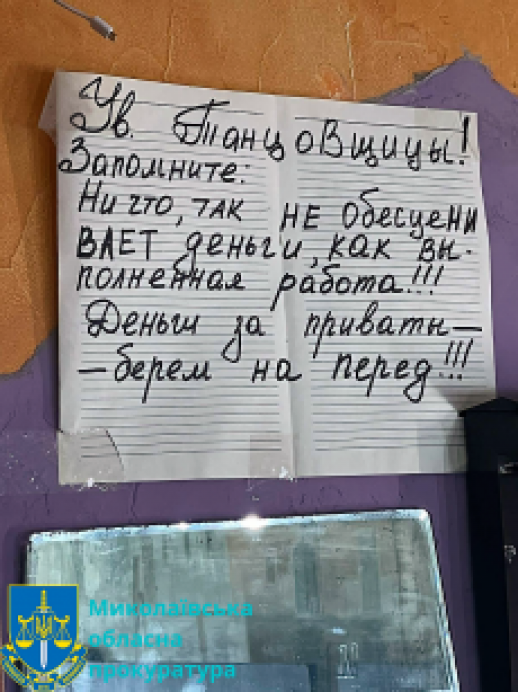 Ув. Танцовщицы!
Запомните:
Ни что, так не обесцени
вает деньги, как вы-
полненная работа!!!
Деньги за приваты —
— берем на перед!!!
Миколаївська
обласна
прокуратура